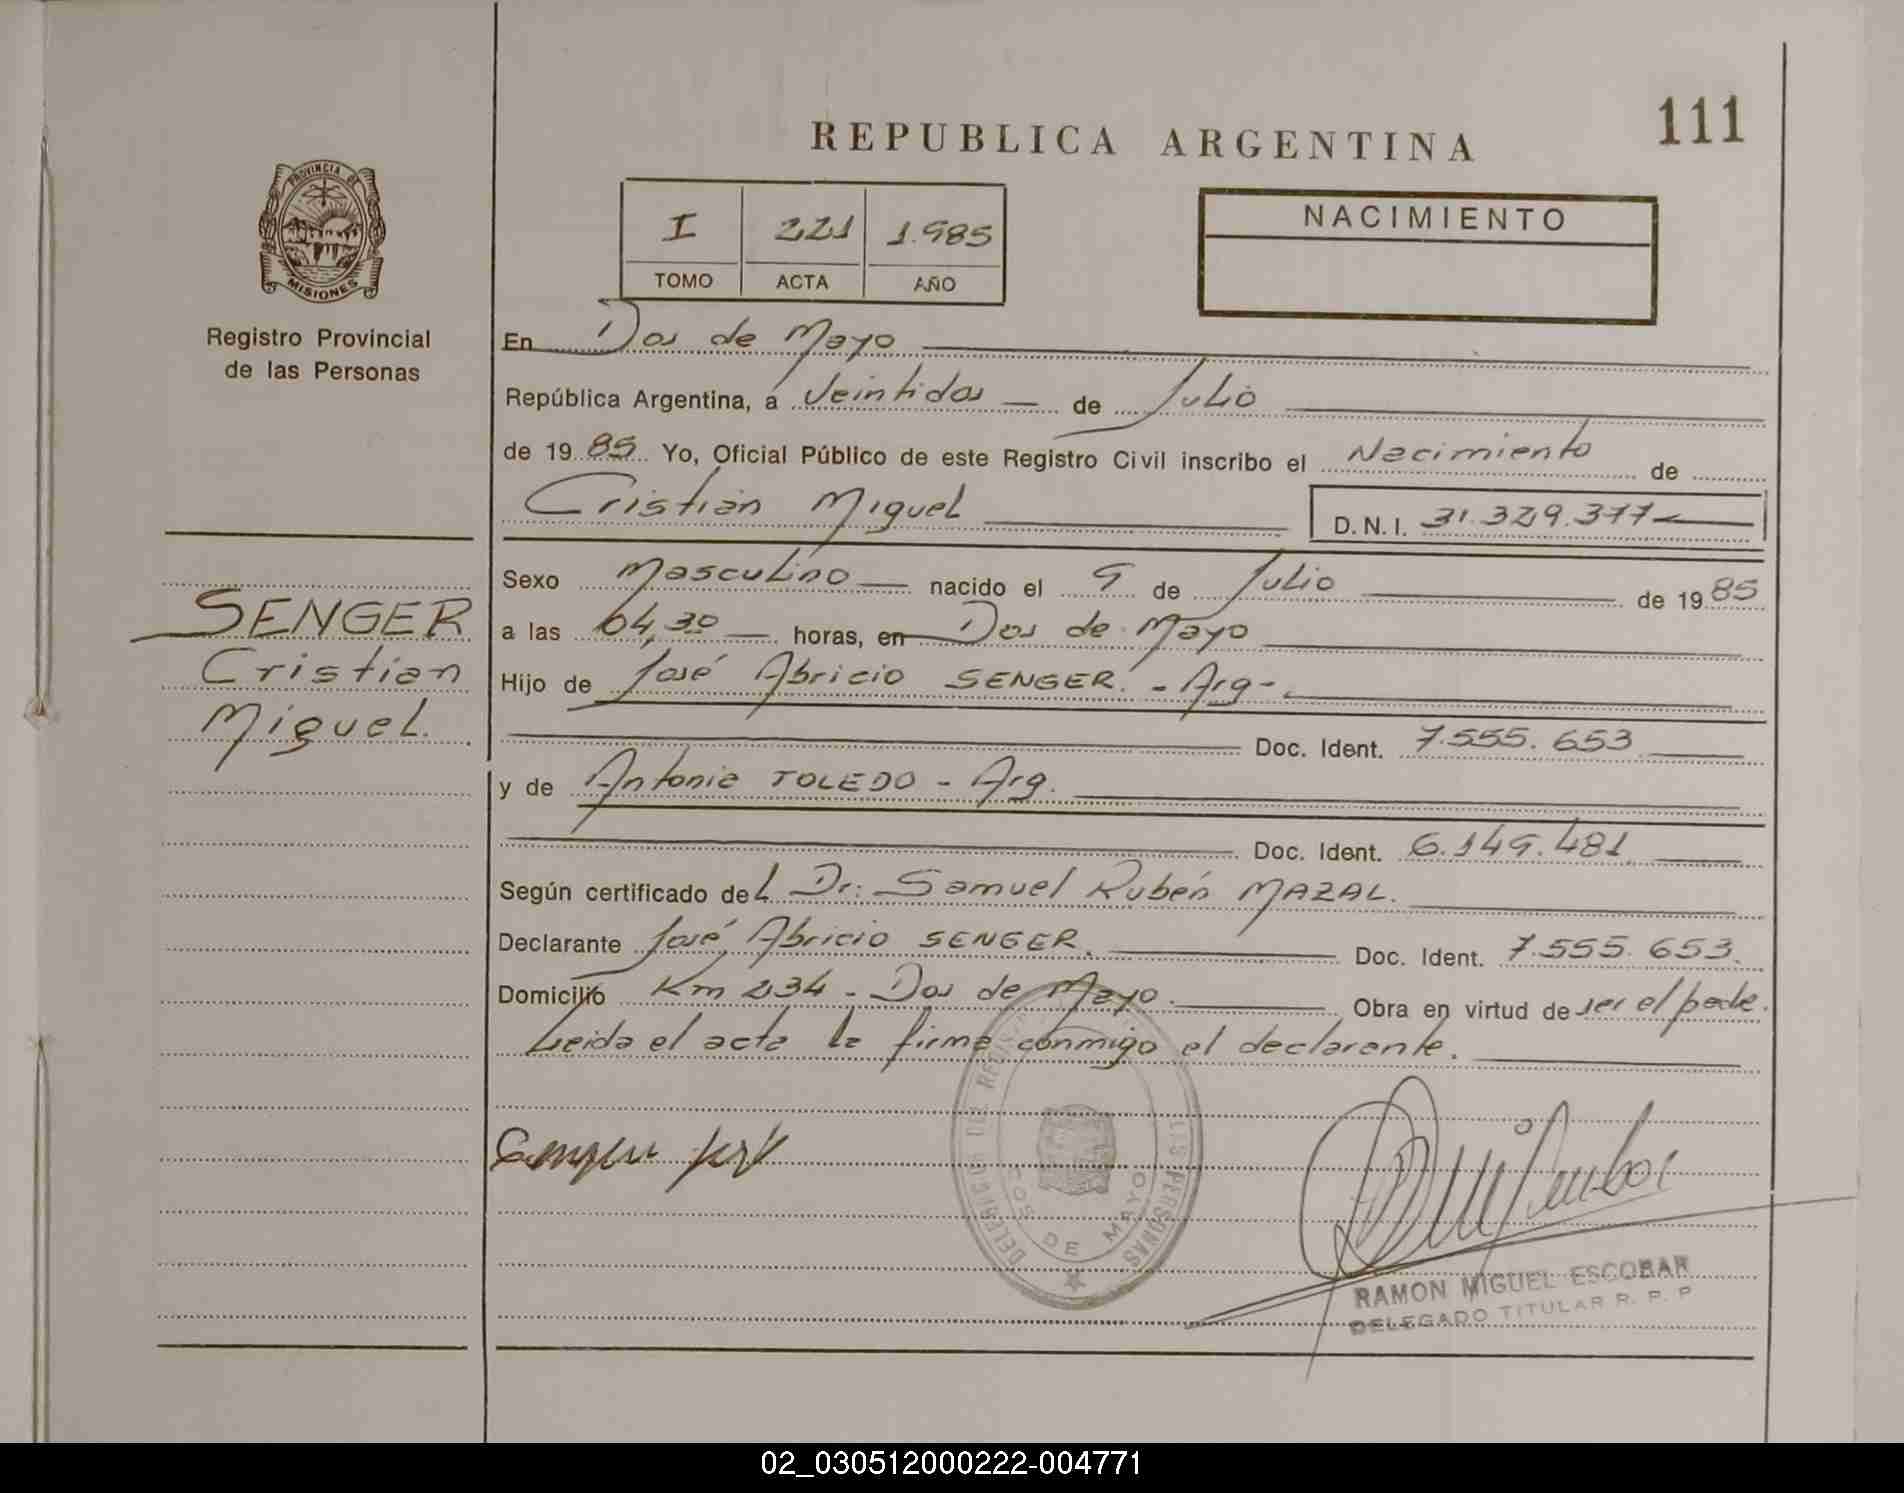 111
REPUBLICA ARGENTINA
PROVINCIA DE
MISIONES
Registro Provincial
de las Personas
I 221 1.985
TOMO ACTA AÑO
NACIMIENTO
En Dos de Mayo
República Argentina, a Veintidos de Julio
de 1985 Yo, Oficial Público de este Registro Civil inscribo el Nacimiento de
Cristian Miguel D.N.I. 31.329.377
SENGER
Cristian
Miguel.
Sexo Masculino nacido el 9 de Julio de 1985
a las 04,30 horas, en Dos de Mayo
Hijo de José Abricio SENGER. - Arg -.
Doc. Ident. 7.555.653
y de Antonia TOLEDO - Arg.
Doc. Ident. 6.149.481
Según certificado del Dr: Samuel Rubén MAZAL.
Declarante José Abricio SENGER. Doc. Ident. 7.555.653.
Domicilio Km 234 - Dos de Mayo. Obra en virtud de ser el padre.
Leida el acta la firma conmigo el declarante.
DELEGACION DEL REGISTRO LAS PERSONAS
DOS DE MAYO
RAMON MIGUEL ESCOBAR
DELEGADO TITULAR R. P. P
02_030512000222-004771